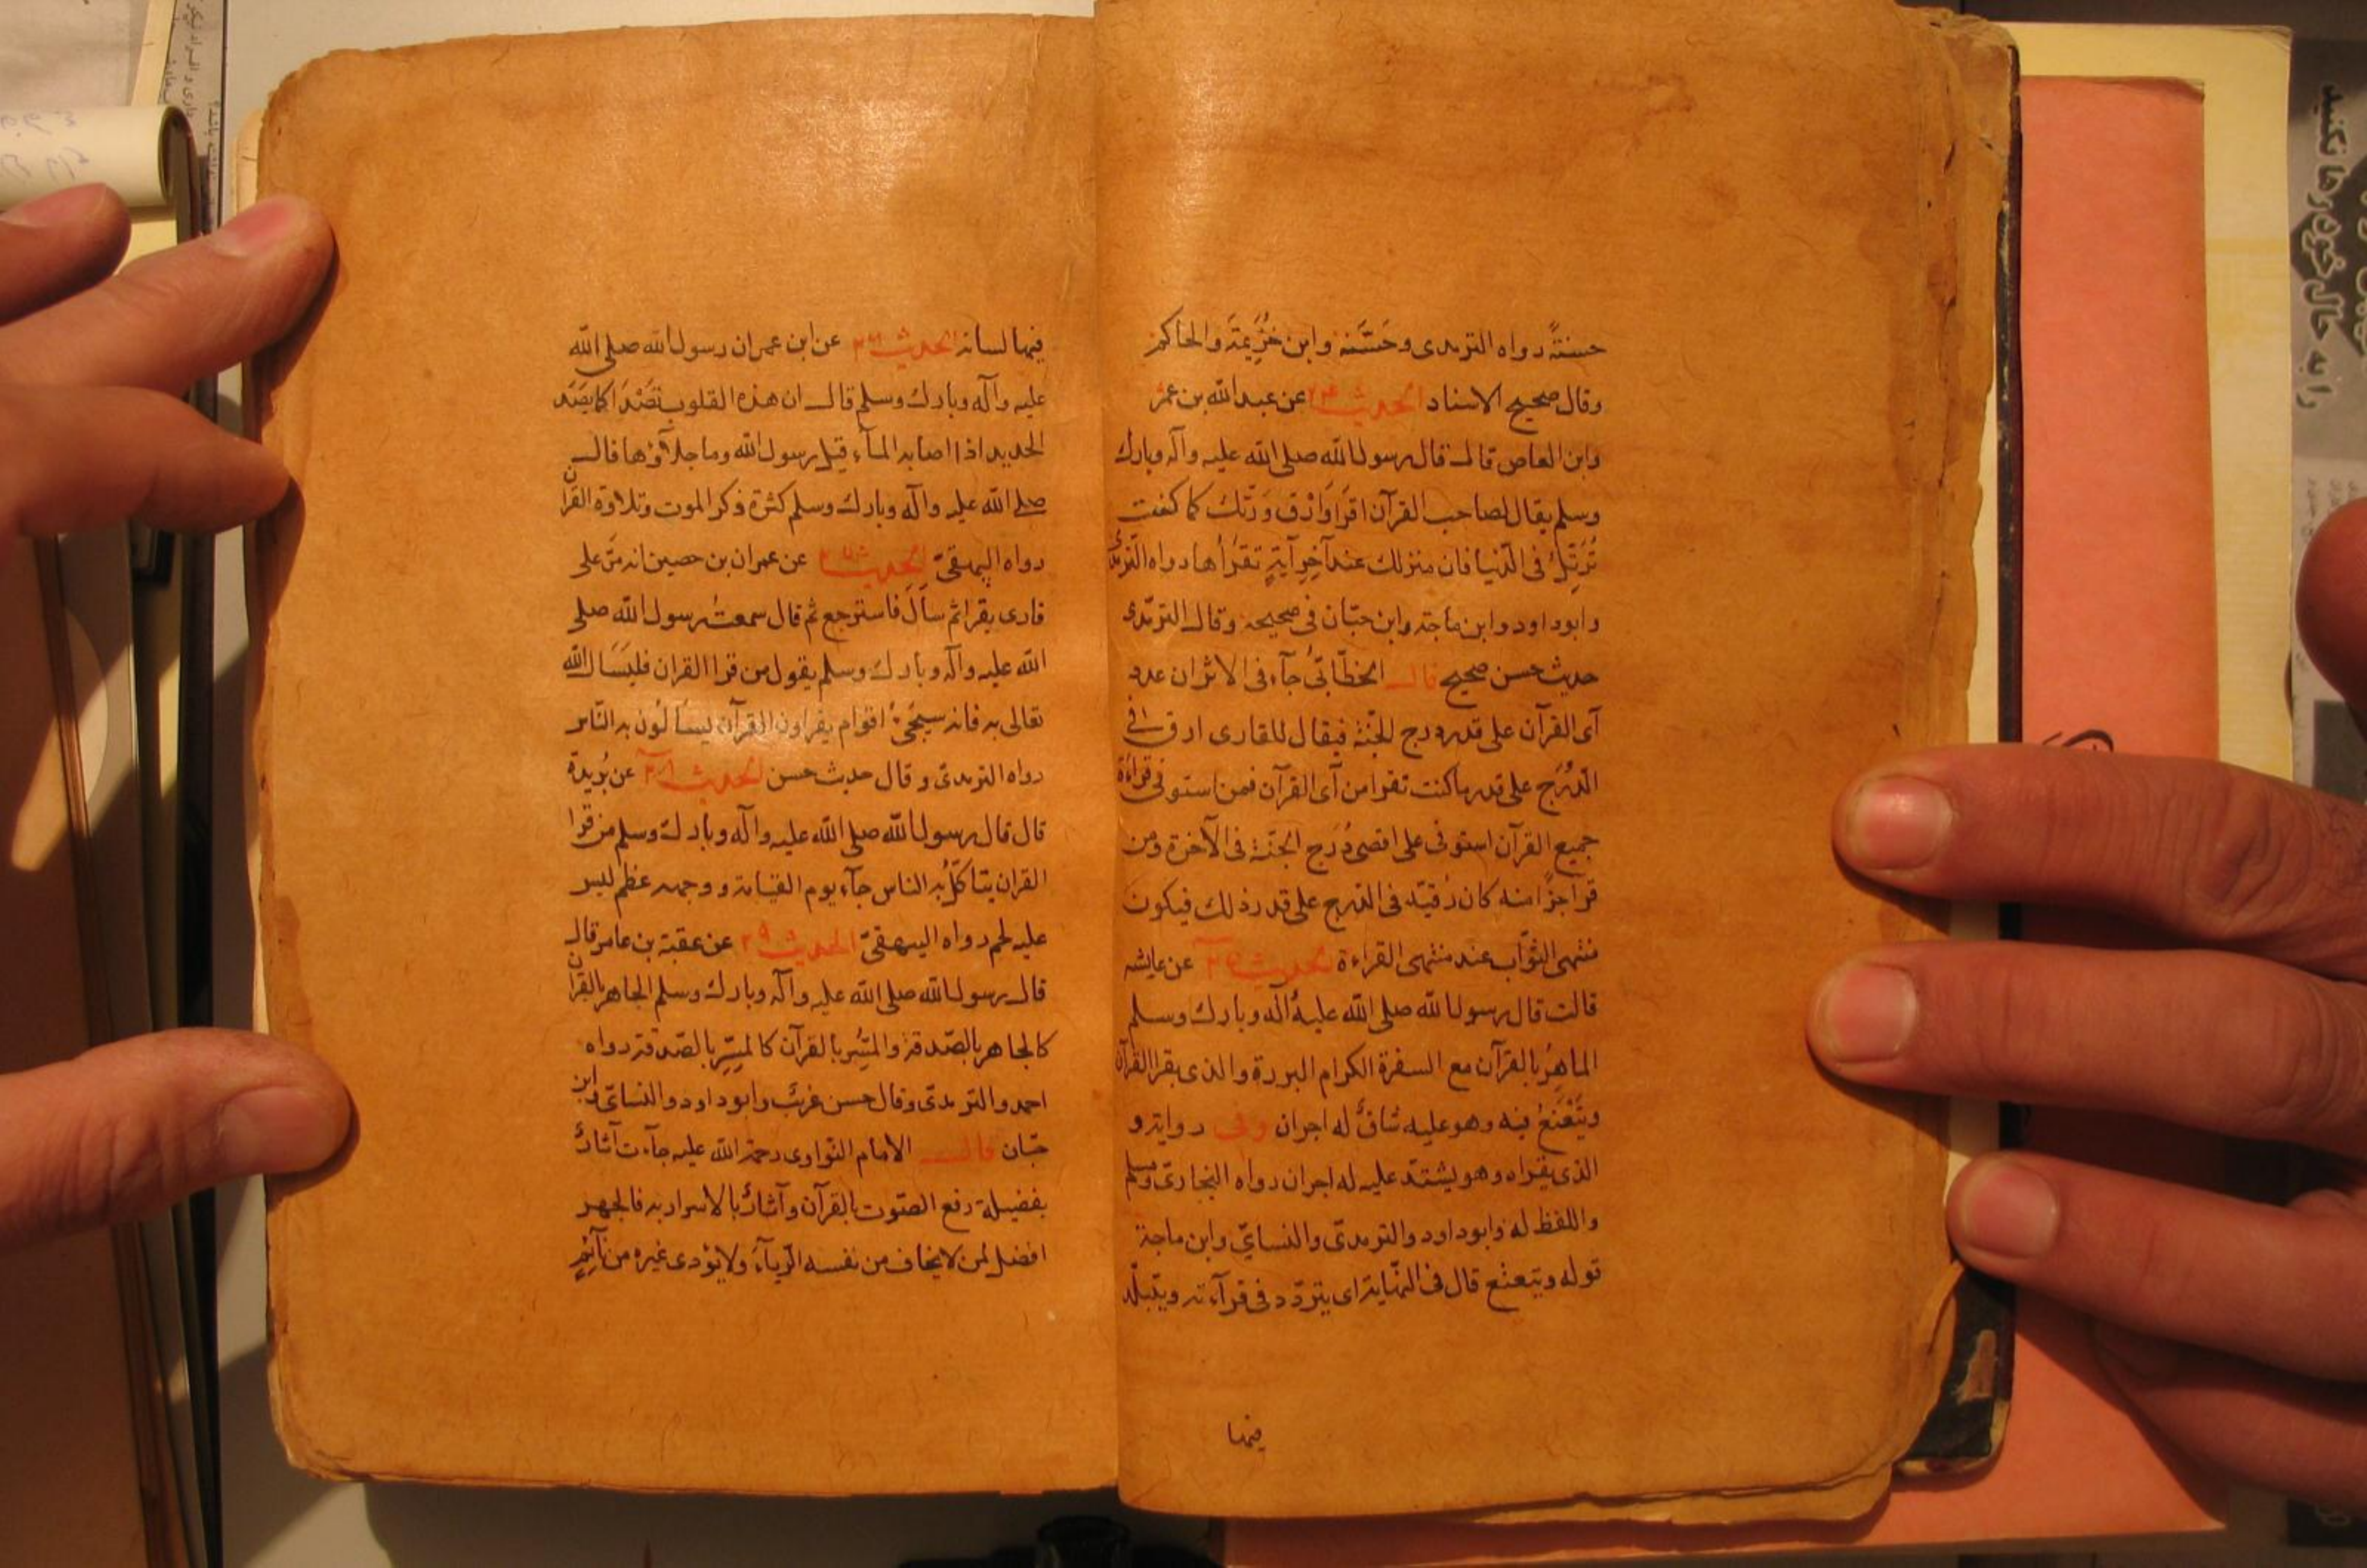 حسنةً رواه الترمدى وحَسَّنه وابن خُزَيمَة والحاكم
وقال صحيح الاسناد الحديث ٢٤ عن عبد الله بن عمر
وابن العاص قال قال رسول الله صلى الله عليه وآله وبارك
وسلم يقال لصاحب القرآن اقرَا وَارْق وَرَتّل كما كنت
تُرَتِّل فى الدّنيا فان منزلك عند آخِرِ آيَةٍ تقرَأُها رواه الترمدى
وابوداود وابن ماجة وابن حبّان فى صحيحه وقال الترمدى
حديث حسن صحيح قال الخطّابىّ جآء فى الاثر ان عدد
آى القرآن على قدر درج الجنّة فيقال للقارى ارق فى
الدّرَج على قدر ما كنت تقرا من آى القرآن فمن استوفى قراءَة
جميع القرآن استوفى على اقصى دُرَج الجنّة فى الآخرة ومن
قرا جزًا منه كان رُقيّه فى الدّرج على قدر ذلك فيكون
منتهى الثوّاب عند منتهى القراءة الحديث ٢٥ عن عايشه
قالت قال رسول الله صلى الله عليه وآله وبارك وسلم
الماهِرُ بالقرآن مع السفرة الكرام البررة والذى يقرا القرآن
ويَتَعْتَعُ فيه وهو عليه شاقٌّ له اجران وفى رواية و
الذى يقراه وهو يشتدّ عليه له اجران رواه البخارىّ ومسلم
واللفظ له وابوداود والترمدىّ والنسايّ وابن ماجة
قوله ويتعتع قال فى النّهاية اى يتردّد فى قرآءته ويتبلّد
فيها
فيها لسانه الحديث ٢٦ عن ابن عمر ان رسول الله صلى الله
عليه وآله وبارك وسلم قال ان هذه القلوب تصْدَأ كما يصْدَأ
الحديد اذا اصابه المآء قيل يرسول الله وما جلآؤها قال
صلى الله عليه وآله وبارك وسلم كثرة ذكر الموت وتلاوة القرآن
رواه البيهقىّ الحديث ٢٧ عن عمران بن حصين انه مَرّ على
قارى يقرا ثم سأَلَ فاسترجع ثم قال سمعتُ رسول الله صلى
الله عليه وآله وبارك وسلم يقول من قرا القران فليَسَال الله
تعالى به فانه سيجئ اقوام يقراون القرآن يسألُون به النّاس
رواه الترمدىّ وقال حديث حسن الحديث ٢٨ عن بُريدة
قال قال رسول الله صلى الله عليه وآله وبارك وسلم من قرا
القران يتاكّلُ به الناس جآء يوم القيامة ووجهه عظم ليس
عليه لحم رواه البيهقىّ الحديث ٢٩ عن عقبة بن عامر قال
قال رسول الله صلى الله عليه وآله وبارك وسلم الجاهر بالقرآن
كالجاهر بالصّدقة والمسِّر بالقرآن كالمسِّرِ بالصّدقة رواه
احمد والترمدىّ وقال حسن غريبٌ وابوداود والنسائىّ وابن
حبّان قال الامام النّواوى رحمة الله عليه جآءت آثارٌ
بفضيلة رفع الصّوت بالقرآن وآثارٌ بالاسرار به فالجهر
افضل لمن لا يخاف من نفسه الرّيآءَ ولا يؤدى غيره من نآئمٍ